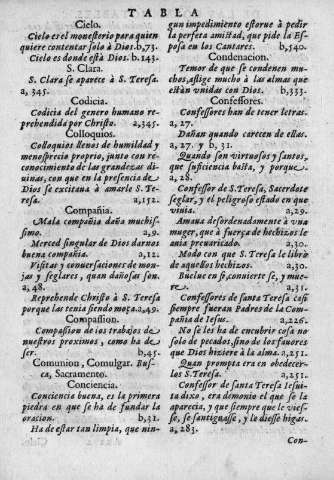 TABLA
Cielo.
Cielo es el monesterio para quien
quiere contentar solo à Dios. b,73.
Cielo es donde està Dios. b.143.
S. Clara.
S. Clara se aparece à S. Teresa.
a, 345.
Codicia.
Codicia del genero humano re-
prehendida por Christo. a,345.
Colloquios.
Colloquios llenos de humildad y
menosprecio proprio, junto con re-
conocimiento de las grandezas di-
uinas, con que en la presencia de
Dios se excitana à amarle S. Te-
resa. a,152.
Compañia.
Mala compañia daña muchis-
simo. a,9.
Merced singular de Dios darnos
buena compañia. a,12.
Visitas y conuersaciones de mon-
jas y seglares, quan dañosas son.
a, 48.
Reprehende Christo à S. Teresa
porque las tenia siendo moça. a,49.
Compassion.
Compassion de los trabajos de
nuestros proximos, como ha de
ser. b,45.
Comunion, Comulgar. Bus-
ca, Sacramento.
Conciencia.
Conciencia buena, es la primera
piedra en que se ha de fundar la
oracion. b,31.
Ha de estar tan limpia, que nin-
gun impedimiento estorue à pedir
la perfeta amistad, que pide la Es-
posa en los Cantares. b,540.
Condenacion.
Temor de que se condenen mu-
chos, aflige mucho à las almas que
están vnidas con Dios. b,333.
Confessores.
Confessores han de tener letras.
a, 27.
Dañan quando carecen de ellas.
a, 27. y b, 31.
Quando son virtuosos y santos,
que suficiencia basta, y porque.
a, 28.
Confessor de S. Teresa, Sacerdote
seglar, y el peligroso estado en que
viuia. a,29.
Amaua desordenadamente à vna
muger, que à fuerça de hechizos le
auia preuaricado. a,30.
Modo con que S. Teresa le librò
de aquellos hechizos. a,30.
Buelue en si, conuierte se, y mue-
re. a,31.
Confessores de santa Teresa casi
siempre fueran Padres de la Com-
pañia de Iesus. a,226.
No se les ha de encubrir cosa no
solo de pecados, sino de los fauores
que Dios hiziere à la alma. a,251.
Quan prompta era en obedecer-
los S. Teresa. a,251.
Confessor de santa Teresa Iesui-
ta dixo, era demonio el que se la
aparecia, y que siempre que le vies-
se, se santiguasse, y le diesse higas.
a, 283.
Con-